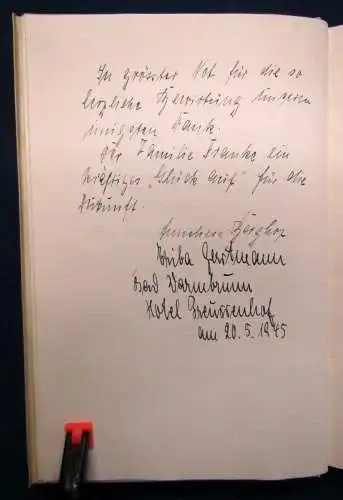 In grösster Not für die so
herzliche Bewirtung unseren
innigsten Dank.
Der Familie Franke ein
kräftiges "Glück auf" für die
Zukunft.
Gerstmann
Bad Warmbrunn
Hotel Preussenhof
am 20.5.1945